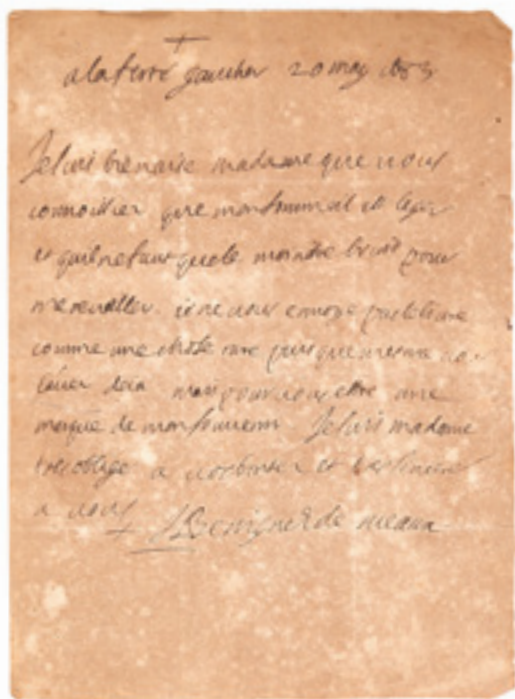 a la ferté gaucher 20 may
Je suis bien aise madame que vous
connoissiez que mon sommeil est leger
et quil ne faut que le moindre bruit pour
m'eveiller. je ne vous envoye pas
comme une chose rare puis que
mais pour vous estre une
marque de mon souvenir. Je suis madame
tres oblige a et
a vous J Benigne e de meaux